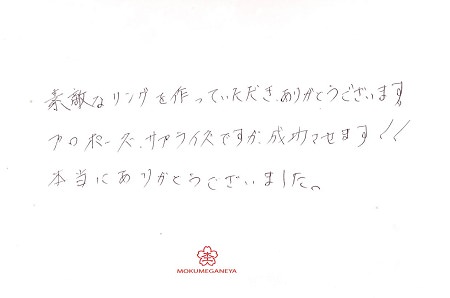 素敵なリングを作っていただき、ありがとうございます。
プロポーズ、サプライズですが、成功させます!!
本当にありがとうございました。
MOKUMEGANEYA